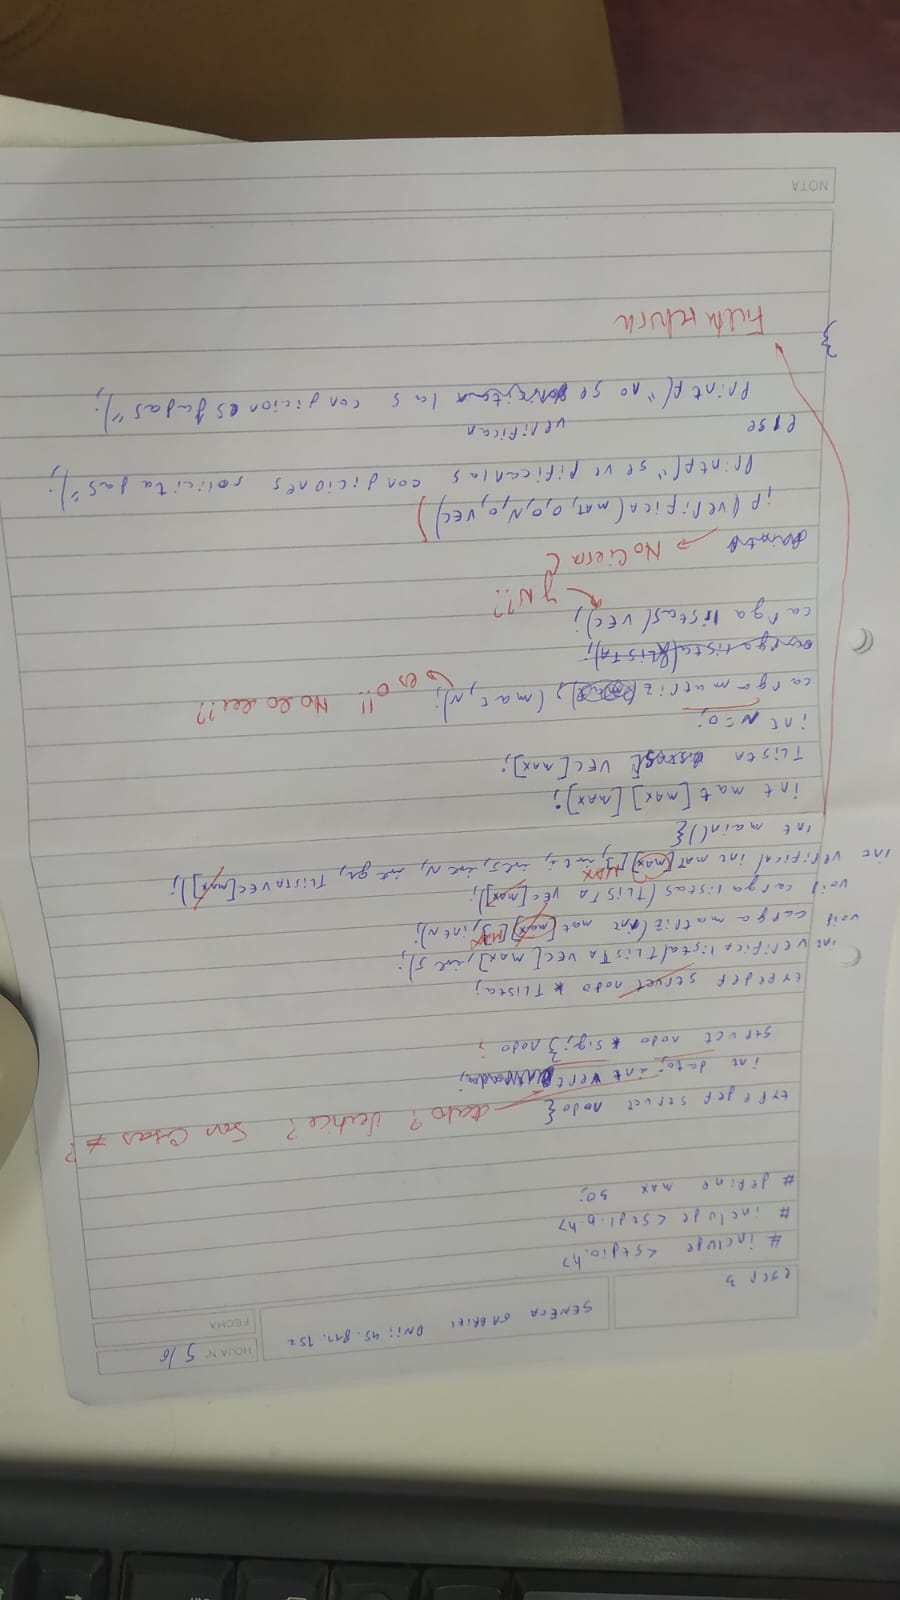 HOJA N° 5/6
SENECA GABRIEL DNi: 45.811.952
FECHA
EJER 3
# include <stdio.h>
# include <stdlib.h>
# define MAX 30;
dato? Vertice? Son Cosas ≠?
typedef struct nodo{
int dato; int vert
struct nodo *sig;} nodo ;
typedef struct nodo * TLista;
int verifica lista(TLISTA VEC[MAX], int j);
void carga matriz (int mat[max][MAX], int N);
void carga listas (TLISTA VEC[MAX]);
int verifica( int MAT[MAX][MAX], int i, int j, int N, int gr, TLISTA VEC[MAX]);
int main(){
int mat[MAX][MAX];
TLista VEC[MAX];
int N=0;
carga matriz (mat, N);
es 0!! No lo leu??
carga lista(&LISTA);
carga listas( VEC);
y N??
No Cierra (
if (verifica(MAT, 0,0,N,0,VEC))
printf(" se verifican las condiciones solicitadas");
else
verifican
printf("no se las condiciones dadas");
}
Falta return
NOTA